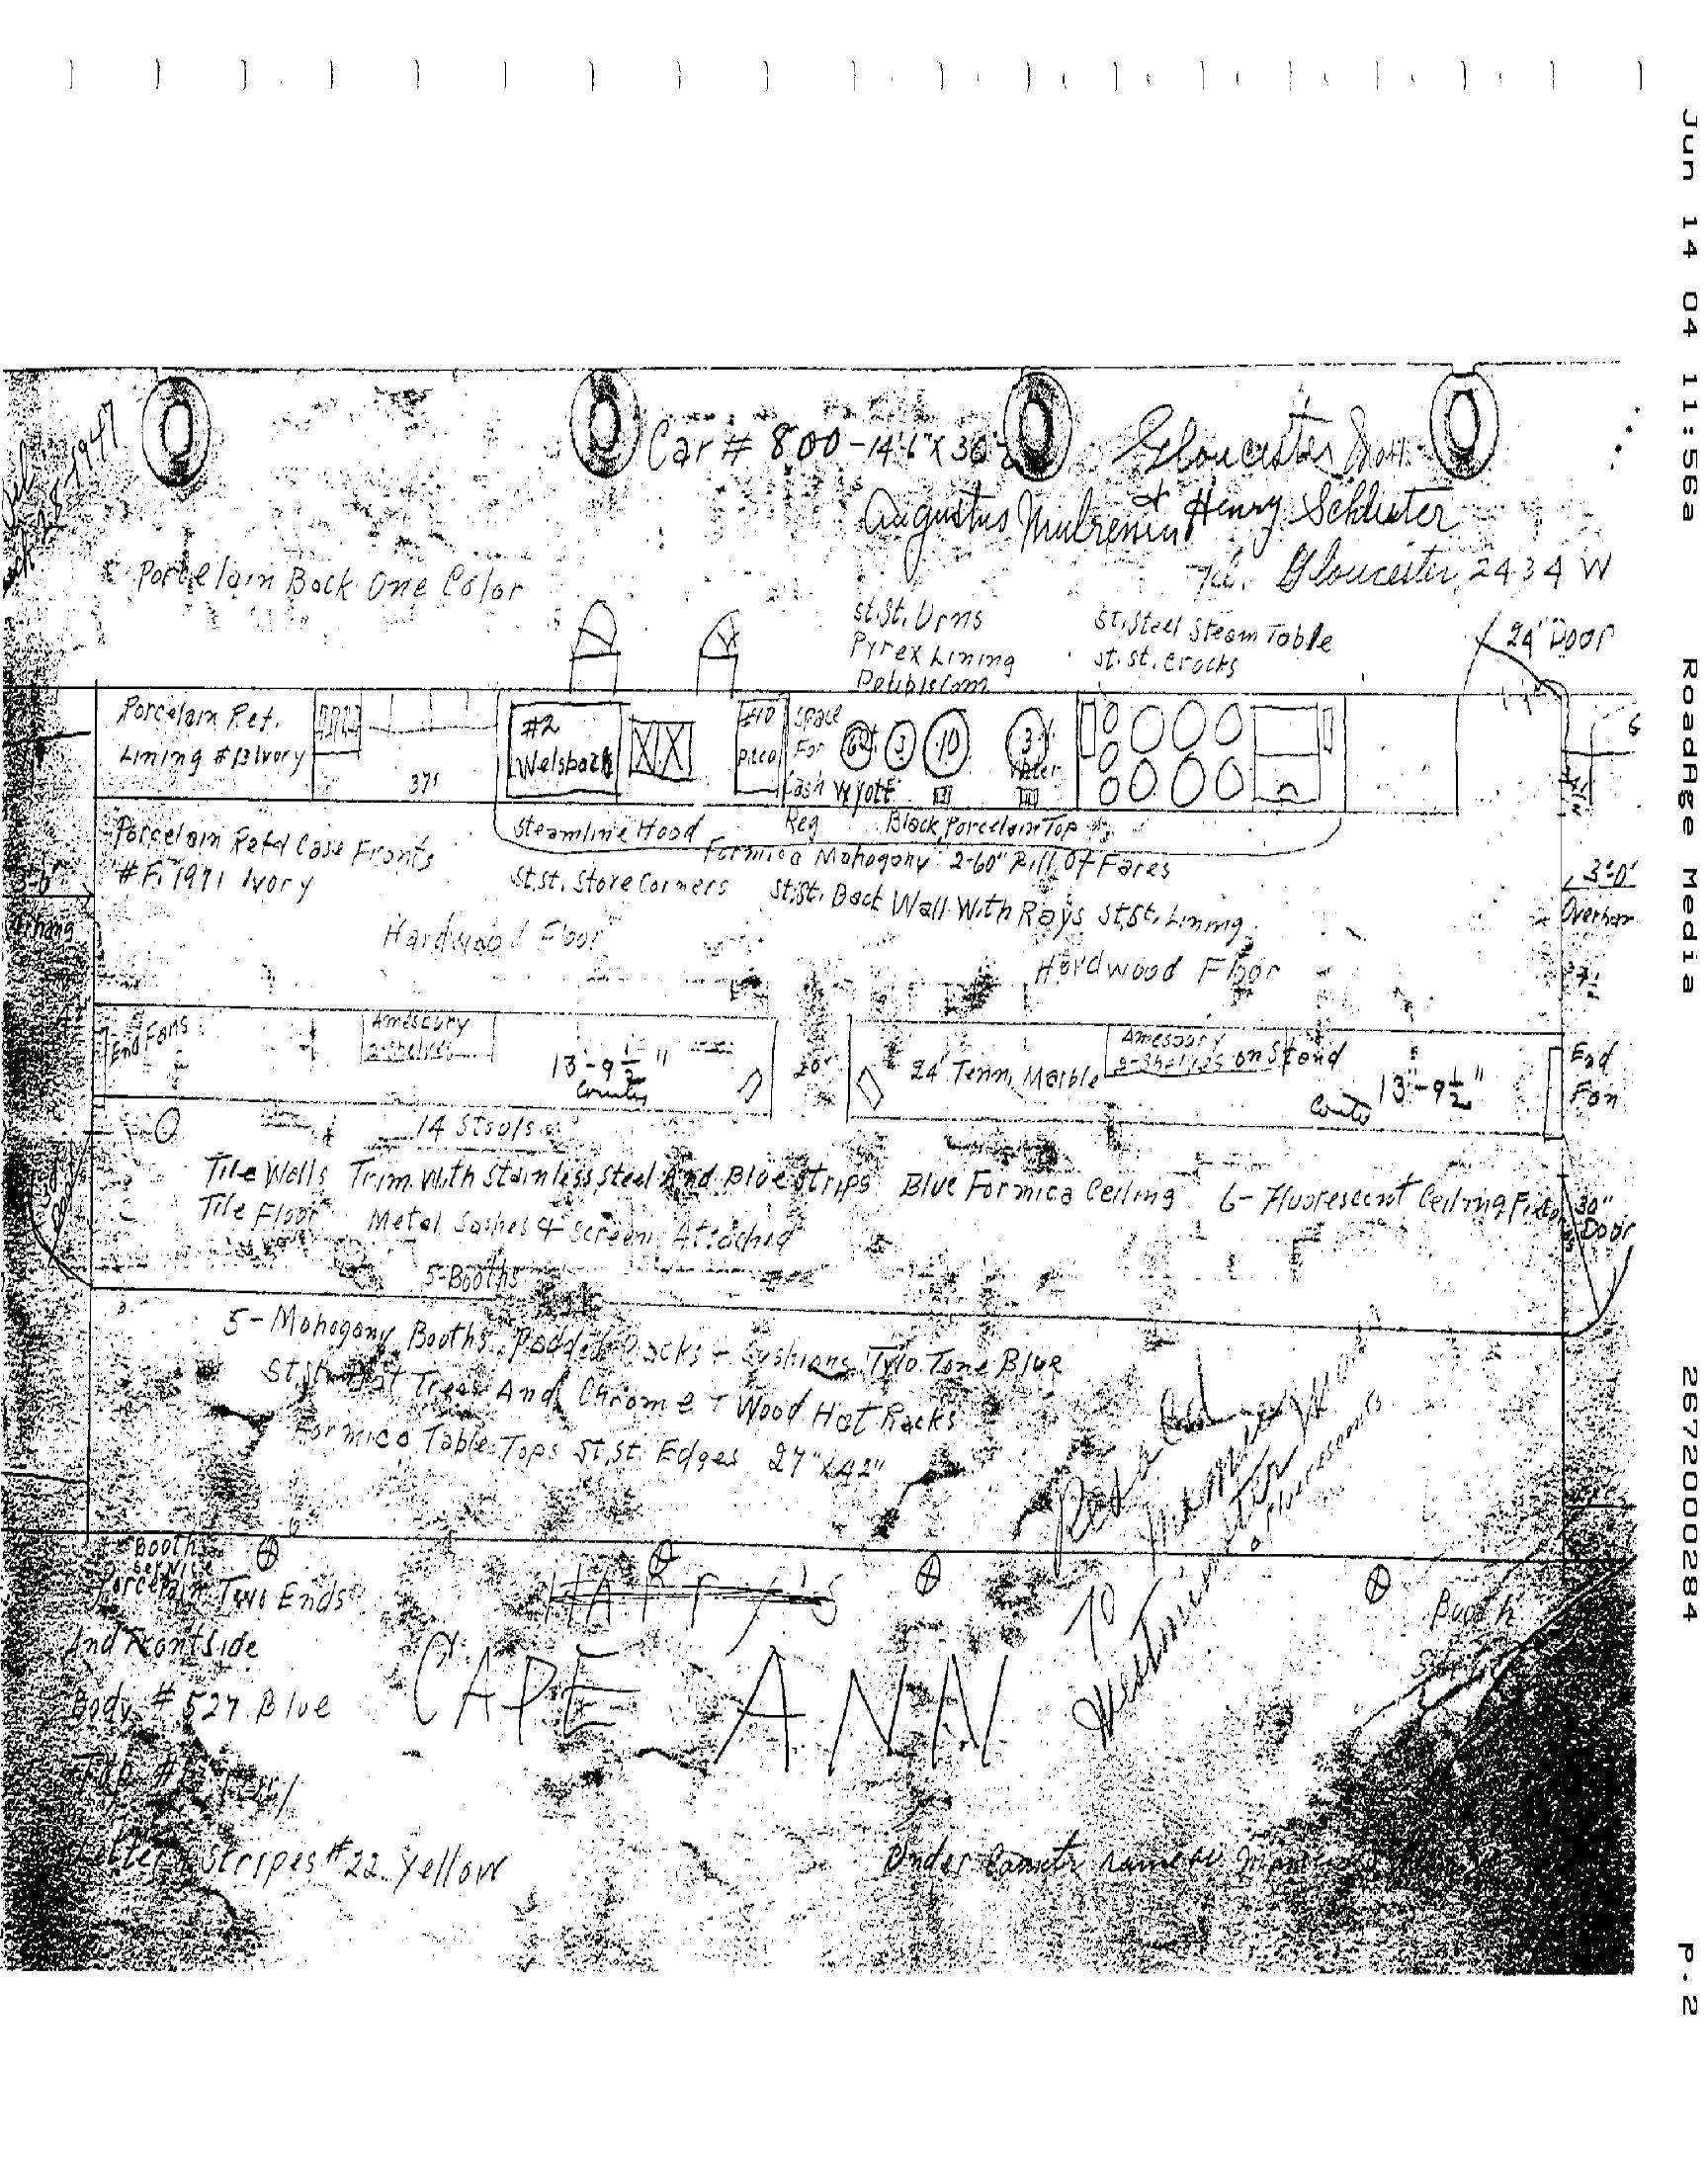 Jun 14 04 11:56a RoadAge Media 2672000284 P.2
1947
Car # 800 - 14'6" X 30'
Gloucester
Augustus Mulrenin & Henry Schluter
Tel. Gloucester 2434 W
Porcelain Back One Color
St.St. Urns
Pyrex Lining
St. Steel Steam Table
St. St. Crocks
24" Door
Porcelain Ref.
Lining #B Ivory
37"
#2
Welsback
#10
Pitco
Space
For
Cash
Reg
Wyott
3
10
3
Water
Steamline Hood
Black Porcelain Top
Porcelain Refd Case Fronts
#F. 1971 Ivory
Formica Mahogany 2-60" Bill Of Fares
St.St. Store Corners
St.St. Back Wall With Rays St.St. Lining
3'-0"
Overhan
Hardwood Floor
Hardwood Floor
End Fans
Amesbury
2-Shelves
13'-9 1/2"
Counter
20"
24" Tenn. Marble
Amesbury
2-Shelves on Stand
13'-9 1/2"
End
Fan
14 Stools
Tile Walls Trim With Stainless Steel And Blue Strips Blue Formica Ceiling 6-Fluorescent Ceiling
Tile Floor Metal Sashes & Screen Attached
30"
Door
5-Booths
5-Mahogany Booths Padded Backs + Cushions Two Tone Blue
St.St. Hat Trees And Chrome + Wood Hat Racks
Formica Table Tops St.St. Edges 27" X 42"
To
Westminster
Booth
Service
Porcelain Two Ends
And Front Side
HARRY'S
Booth
Body # 527 Blue
CAPE ANN
Top #
Letter Stripes #22 Yellow
Under